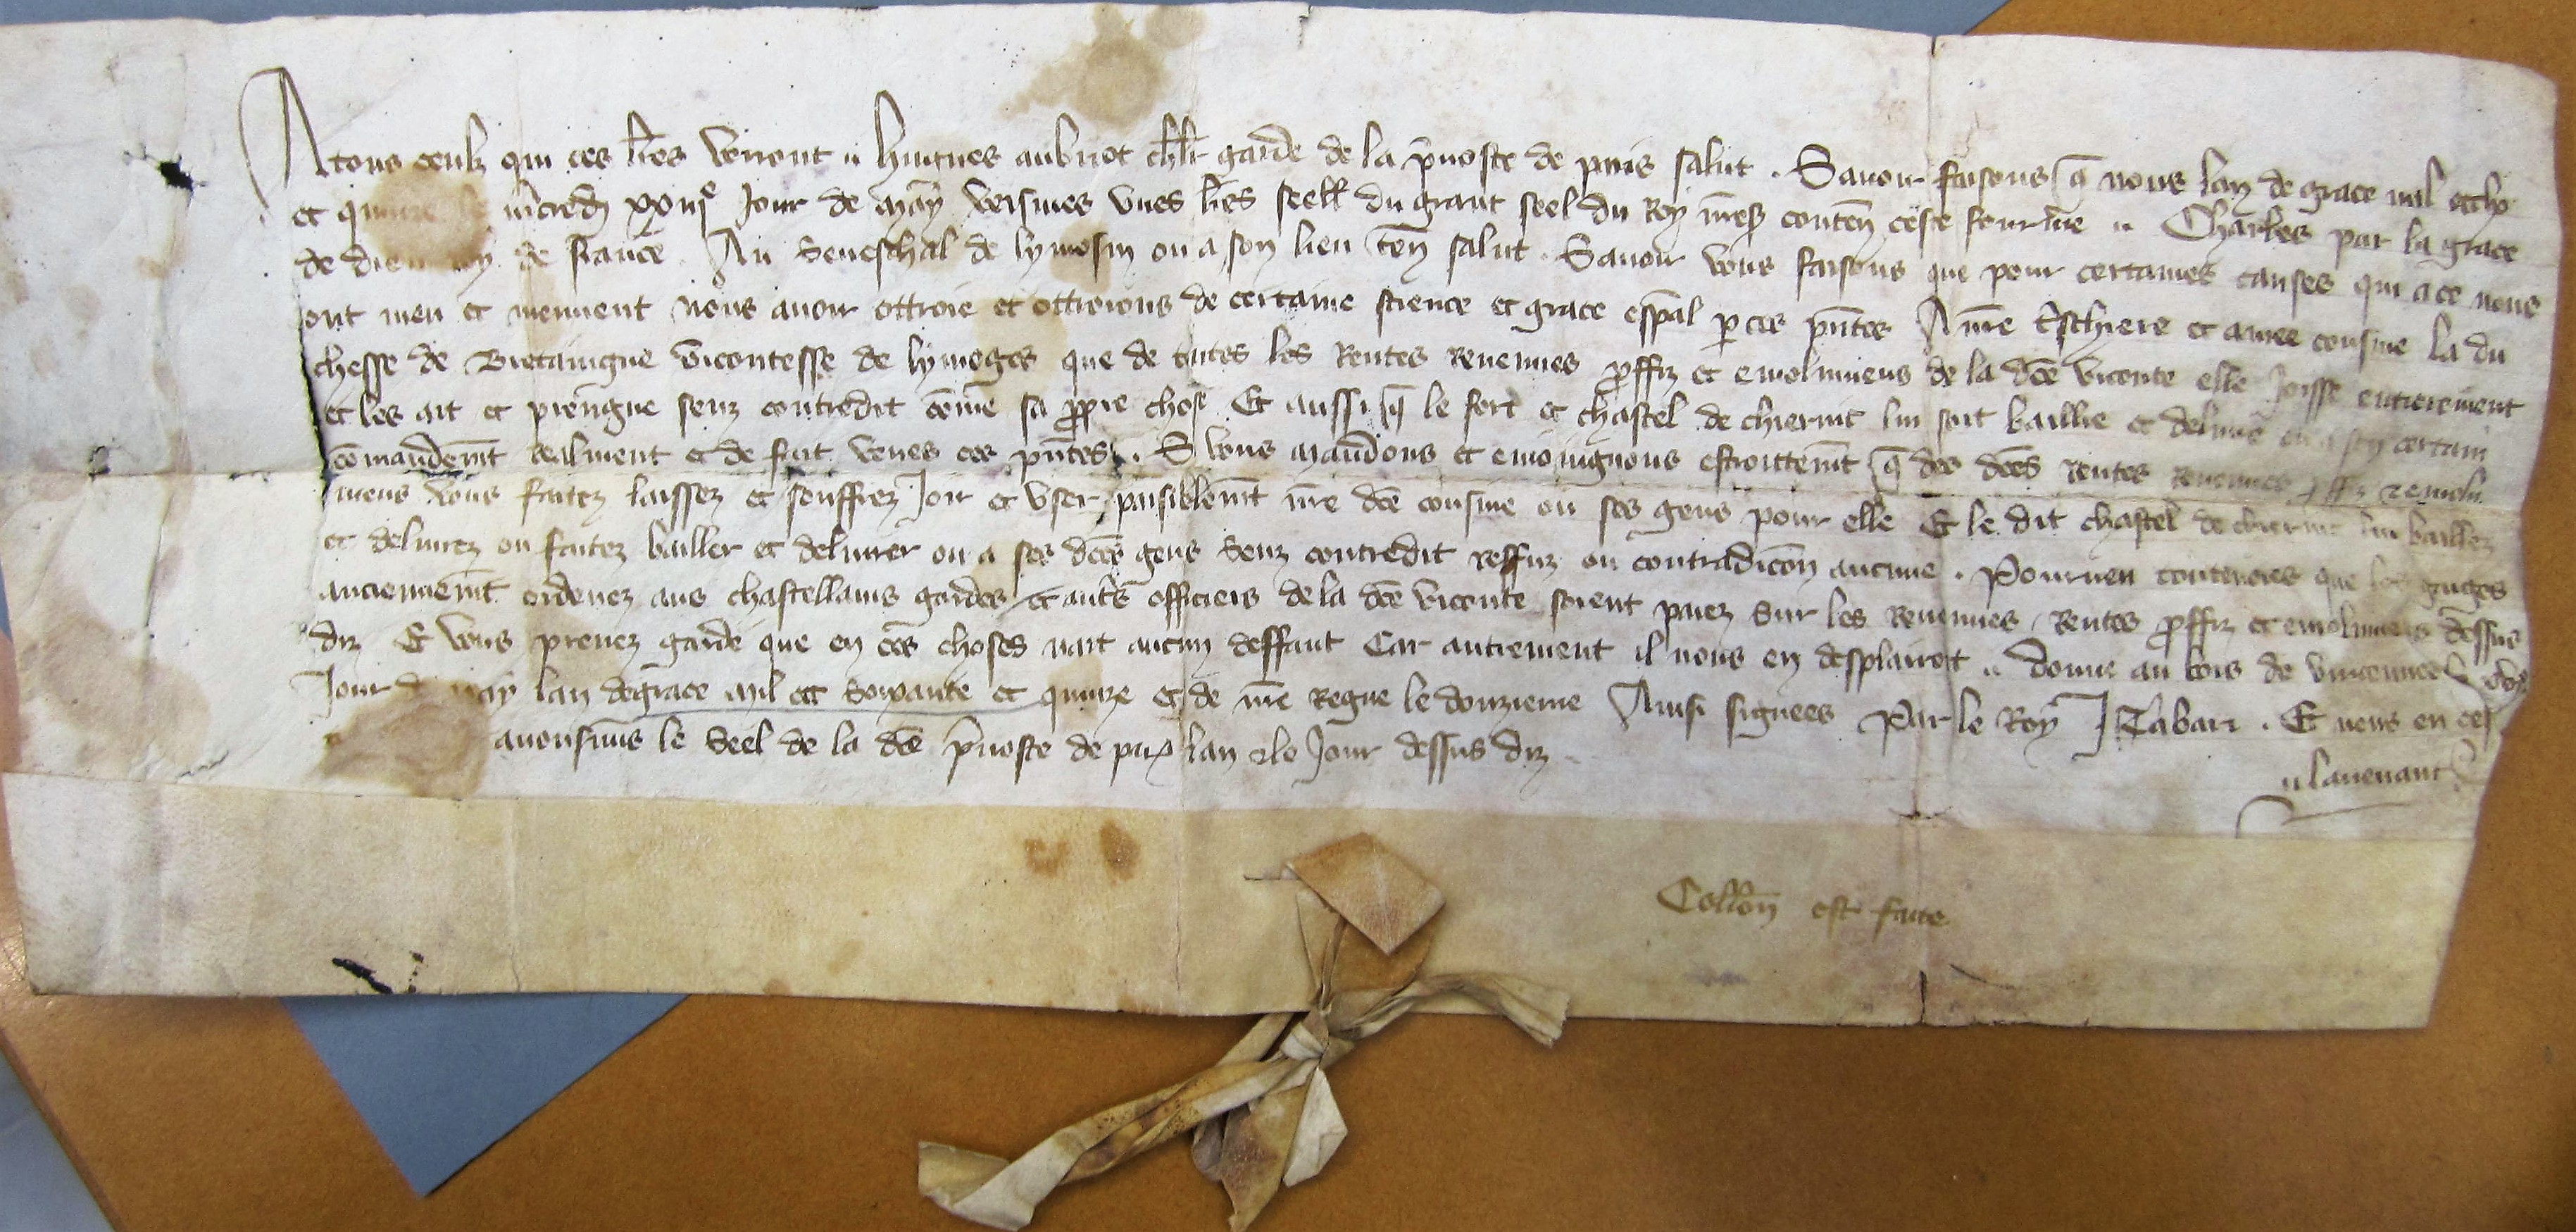 A tous ceulx qui ces lres verront Hugues aubriot chlr garde de la pvoste de paris salut . Savoir faisons q nous lan de grace mil ccclx
et quinze le mcredi xxiiije Jour de may veismes unes lres seell du grant seel du Roy nreS conten ceste fourme Charles par la grace
de dieu Roy de france . Au Seneschal de lymosin ou a son lieu ten salut . Savoir vous faisons que pour certaines causes qui a ce nous
ont meu et meuvent nous avons ottroie et ottroions de certaine science et grace espal p ces pntes A nre treschiere et amee cousine la du
chesse de Bretaingne vicontesse de lymoges que de toutes les Rentes Revenues proffiz et emolumens de la dce viconte elle Joisse entierement
et les ait et preingne senz contredit come sa ppre chose Et aussi q le fort et chastel de chierint lui soit baillie et delivre ou a son certain
comandemt realment et de fait veues ces pntes . Si vous mandons et enjoingnons estroittemt q des dces rentes revenues proffiz et emolu
mens vous faites laissez et souffrez Joir et user paisiblemt nre dce cousine ou ses gens pour elle Et le dit chastel de chierint lui baillez
et delivrez ou faites bailler et delivrer ou a ses dces gens Senz contredit reffuz ou contradicon aucune . Pourveu toutevoies que les gaiges
anciennemt ordenez aus chastellains gardes et autrs officiers de la dce viconte soient paiez Sur les Revenues Rentes proffiz et emolumens dessus
diz Et vous prenez garde que en ces choses nait aucun deffaut Car autrement il nous en desplairoit Donne au bois de vincennes
Jour de may lan de grace mil ccc Soixante et quinze et de nre Regne le douzieme Ainsi signees Par le Roy J Tabari . Et nous en ces
avonsmis le Seel de la dce pvoste de par lan et le Jour dessus diz
lavenant
Collon est faite